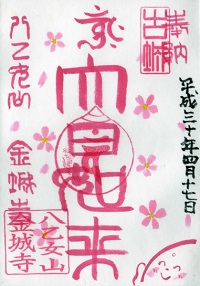 奉納
平成三十年四月十七日
大日如来
八乙女山
金城寺
八乙女山
金城寺